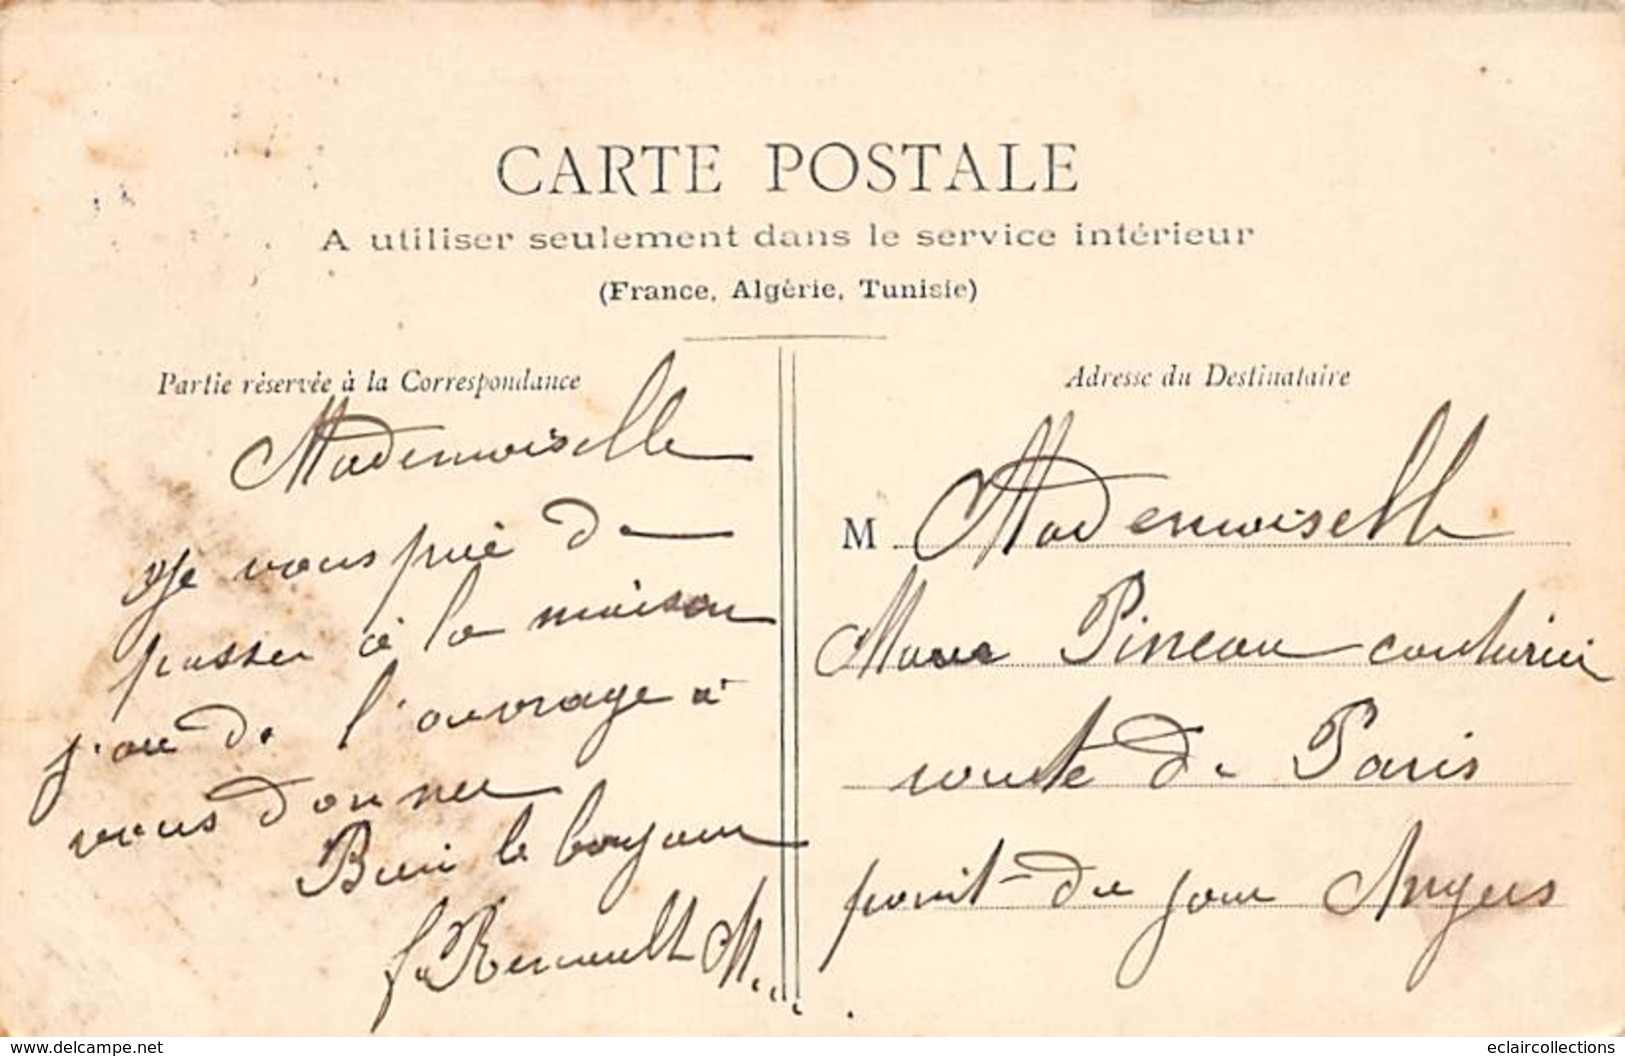 CARTE POSTALE
A utiliser seulement dans le service intérieur
(France, Algérie, Tunisie)
Partie réservée à la Correspondance
Mademoiselle
Je vous prie de
passer à la maison
j'ai de l'ouvrage a
vous donner
Bien le bonjour
Renault M...
Adresse du Destinataire
M. Mademoiselle
Pineau couturier
route de Paris
point-du jour Angers
www.delcampe.net
eclaircollections